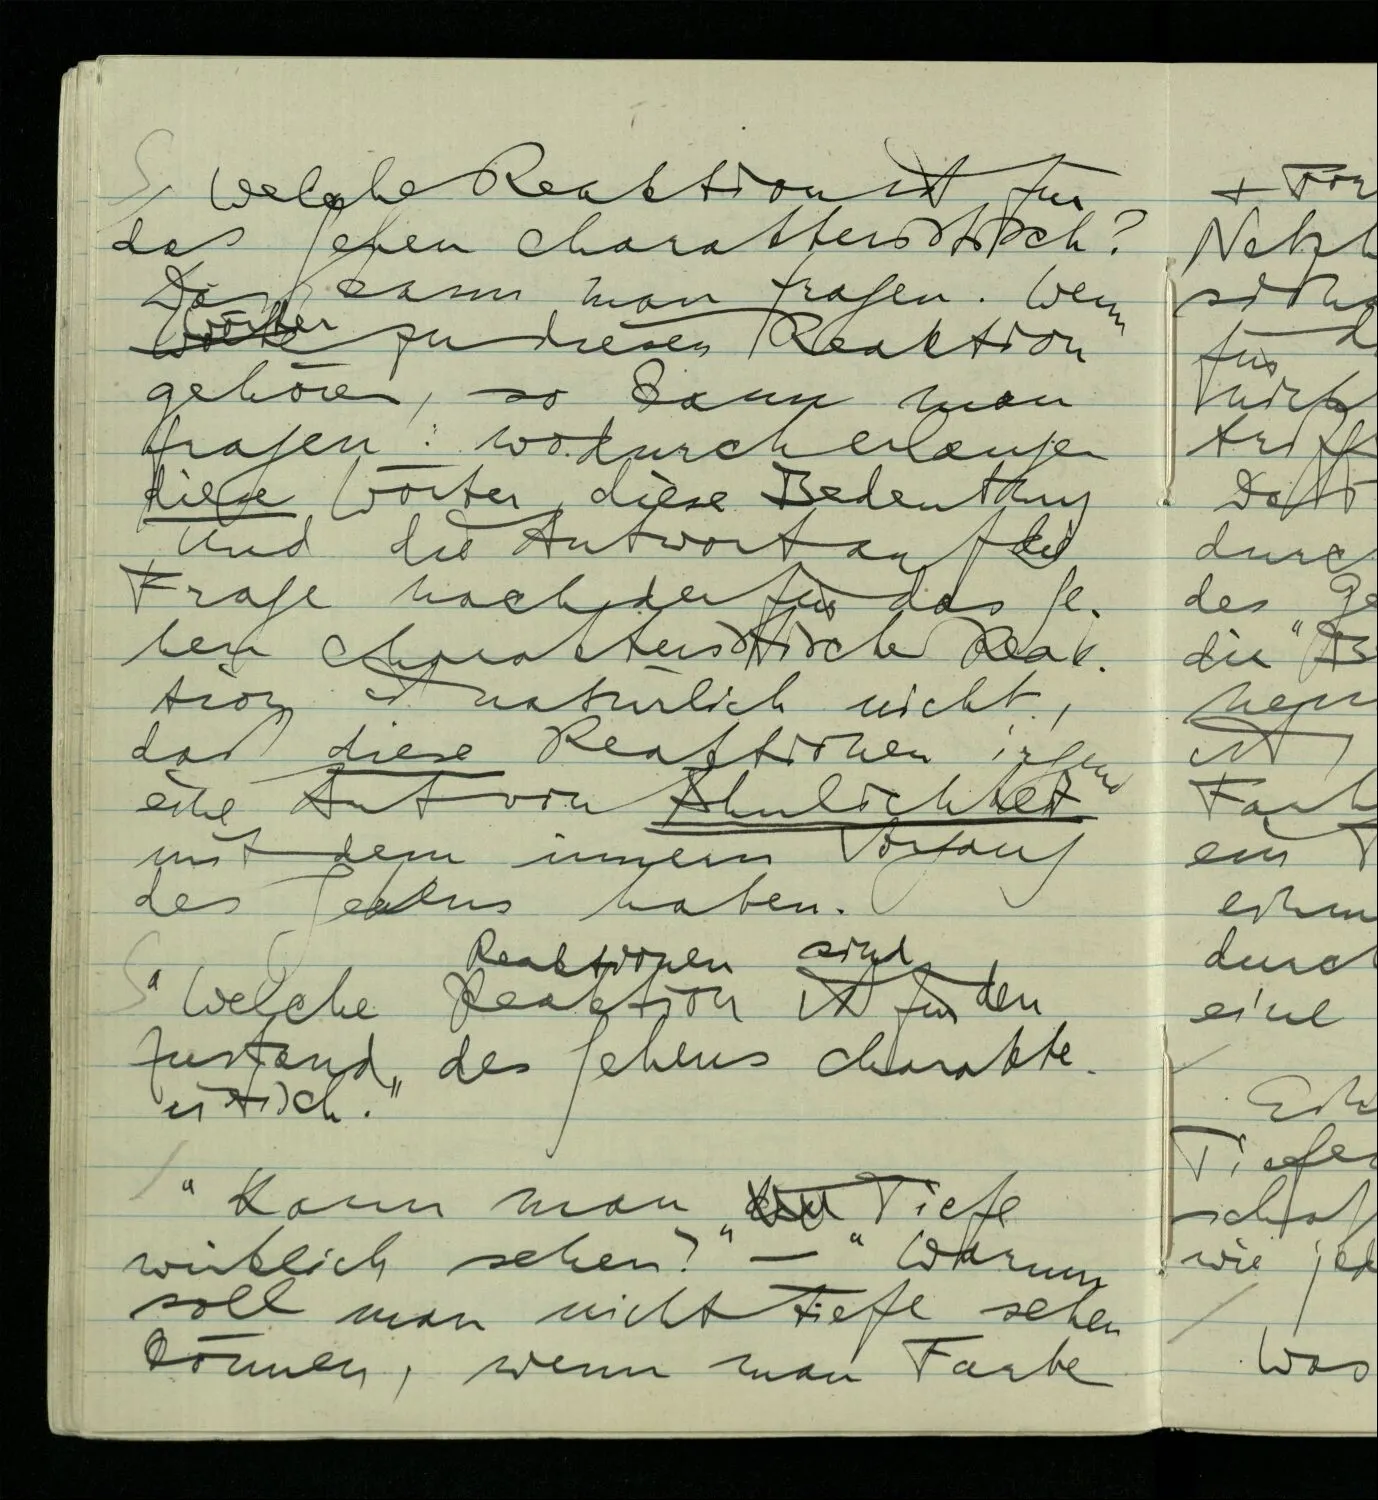 S, Welche Reaktion ist für
das Sehen charakteristisch?
Das kann man fragen. Wenn
Wörter zu diesen Reaktion
gehören, so kann man
fragen: wodurch erlangen
diese Wörter diese Bedeutung
Und die Antwort auf die
Frage nach der für das Se-
hen charakteristische Reak-
tion ist natürlich nicht,
daß diese Reaktionen irgend
eine Art von Ähnlichkeit
mit dem innern Vorgang
des Sehens haben.
Reaktionen sind
S "Welche Reaktion ist für den
Zustand des Sehens charakte-
ristisch."
/ "Kann man Tiefe
wirklich sehen?" — "Warum
soll man nicht Tiefe sehen
können, wenn man Farbe
durc
des Ge
die "B
ist,
ein
durch
eine
Tiefe
wie jed
/
Was